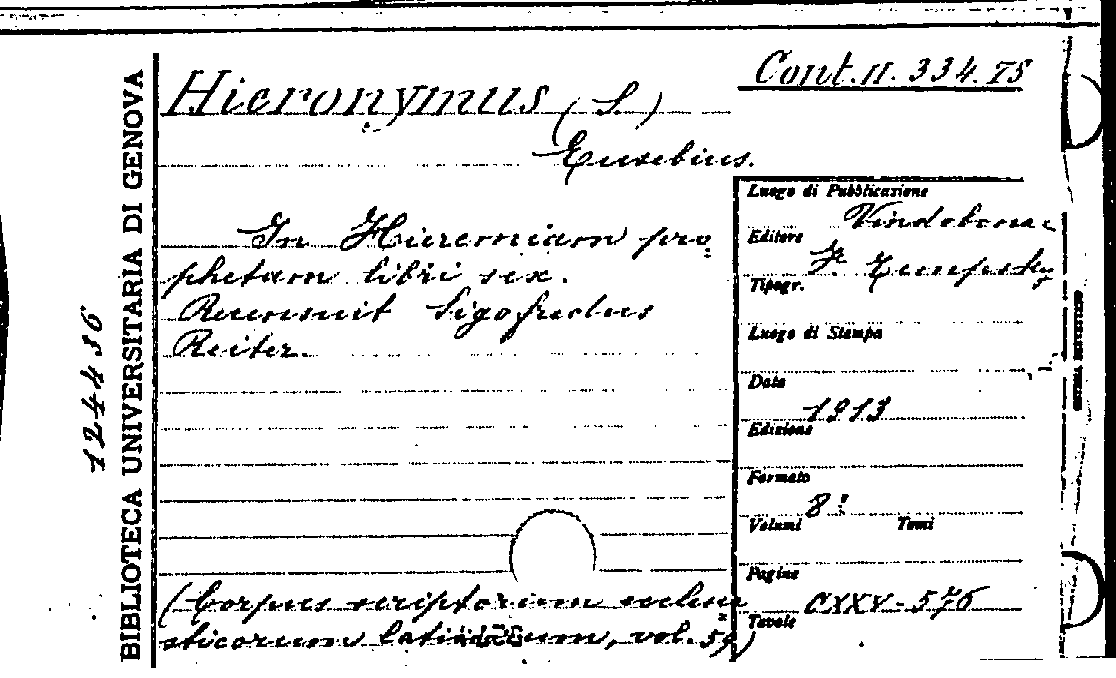 Cont. n. 334.75
Hieronymus (S.)
Eusebius.
In Hieremiam pro=
phetam libri sex.
Recensuit Sigofredus
Reiter.
(Corpus scriptorum eccles=
sticorum latinorum, vol. 59)
Luogo di Pubblicazione
Vindobonae
Editore
F. Tempsky
Tipogr.
Luogo di Stampa
Data
1913
Edizione
Formato
8º
Volumi Tomi
Pagine
CXXV-576
Tavole
BIBLIOTECA UNIVERSITARIA DI GENOVA
124436